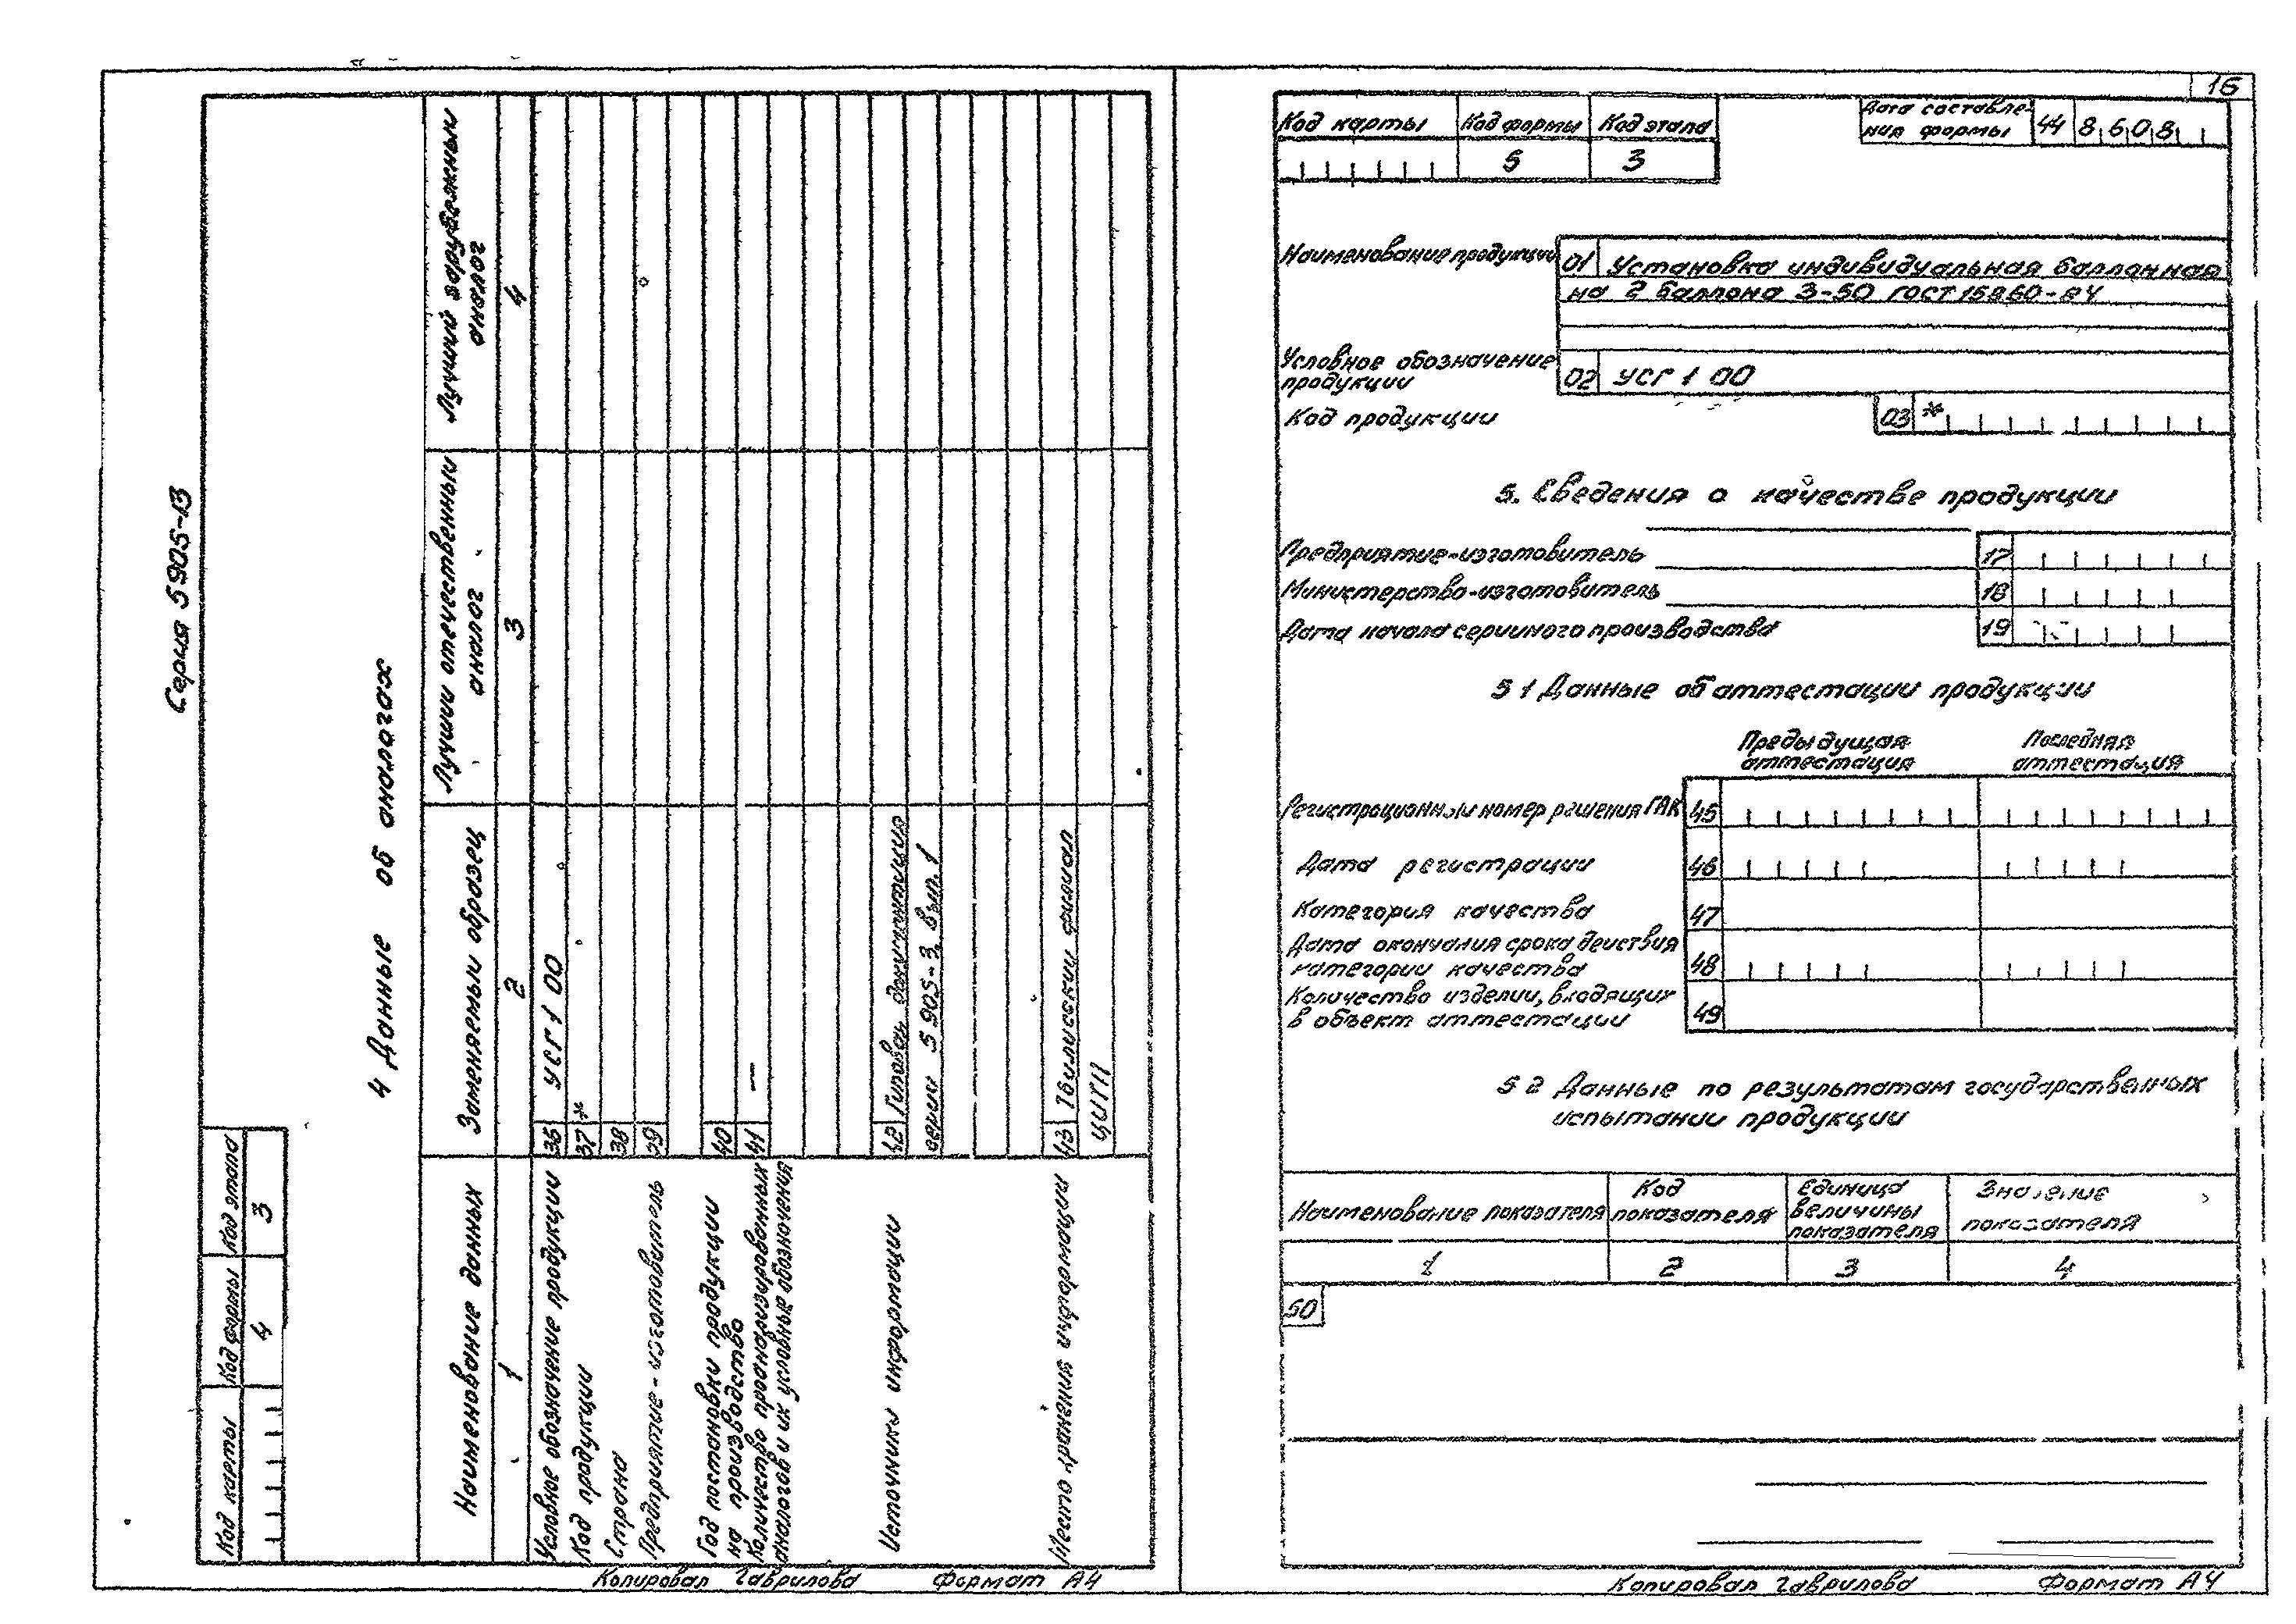 Серия 5 905-13
Код карты
Код формы
Код этапа
4
3
4 Данные об аналогах
Наименование данных
Заменяемыи образец
Лучший зарубежныи
аналог
аналог
1
2
3
4
Условное обозначение продукции
36
УСГ 1 00
Код продукции
37
*
Страна
38
Предприятие-изготовитель
39
Год постановки продукции
на производство
40
Количество проанализированных
аналогов и их условные обозначения
41
—
Источники информации
42
Типовая документация
серии 5 905-3, вып. 1
Место хранения информации
43
Тбилисскии филиал
ЦИТП
Копировал Гаврилова
Формат А4
15
Код карты
Код формы
Код этапа
5
3
Дата составле-
ния формы
44
8608
Наименование продукции
01
Установка индивидуальная баллонная
на 2 баллона 3-50 ГОСТ 15860-84
Условное обозначение
продукции
02
УСГ 1 00
Код продукции
03
*
5. Сведения о качестве продукции
Предприятие-изготовитель
17
Министерство-изготовитель
18
Дата начала серииного производства
19
5 1 Данные об аттестации продукции
Предыдущая
аттестация
Последняя
аттестация
Регистрационныи номер решения ГАК
45
Дата регистрации
46
Категория качества
47
Дата окончания срока деиствия
категории качества
48
Количество изделии, входящих
в объект аттестации
49
5 2 Данные по результатам государственных
испытании продукции
Наименование показателя
Код
показателя
Единица
величины
показателя
Значение
показателя
1
2
3
4
50
Копировал Гаврилова
Формат А4